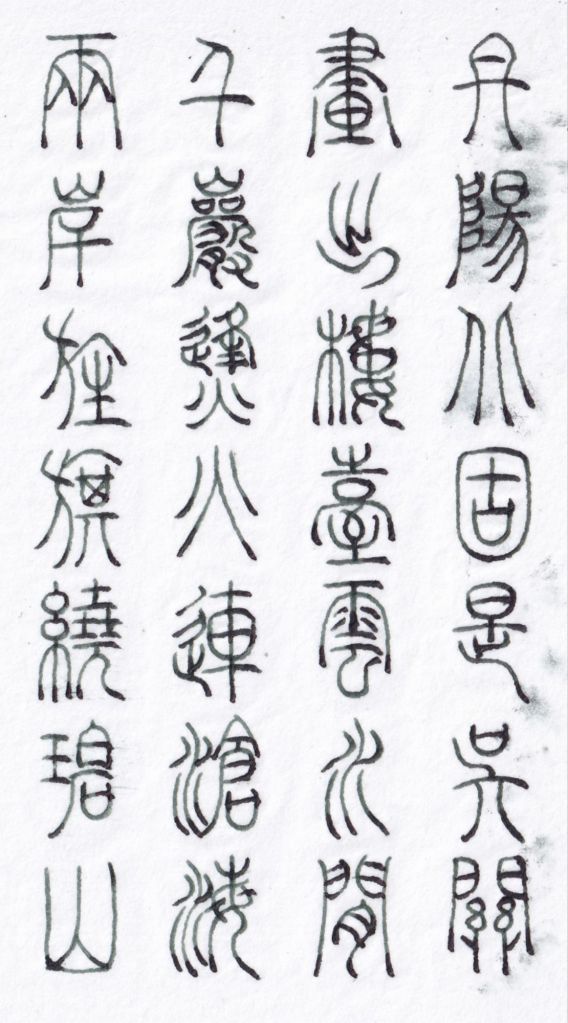 丹陽北固是吳關
畫出樓臺雲水間
千巖烽火連滄海
兩岸旌旗繞碧山